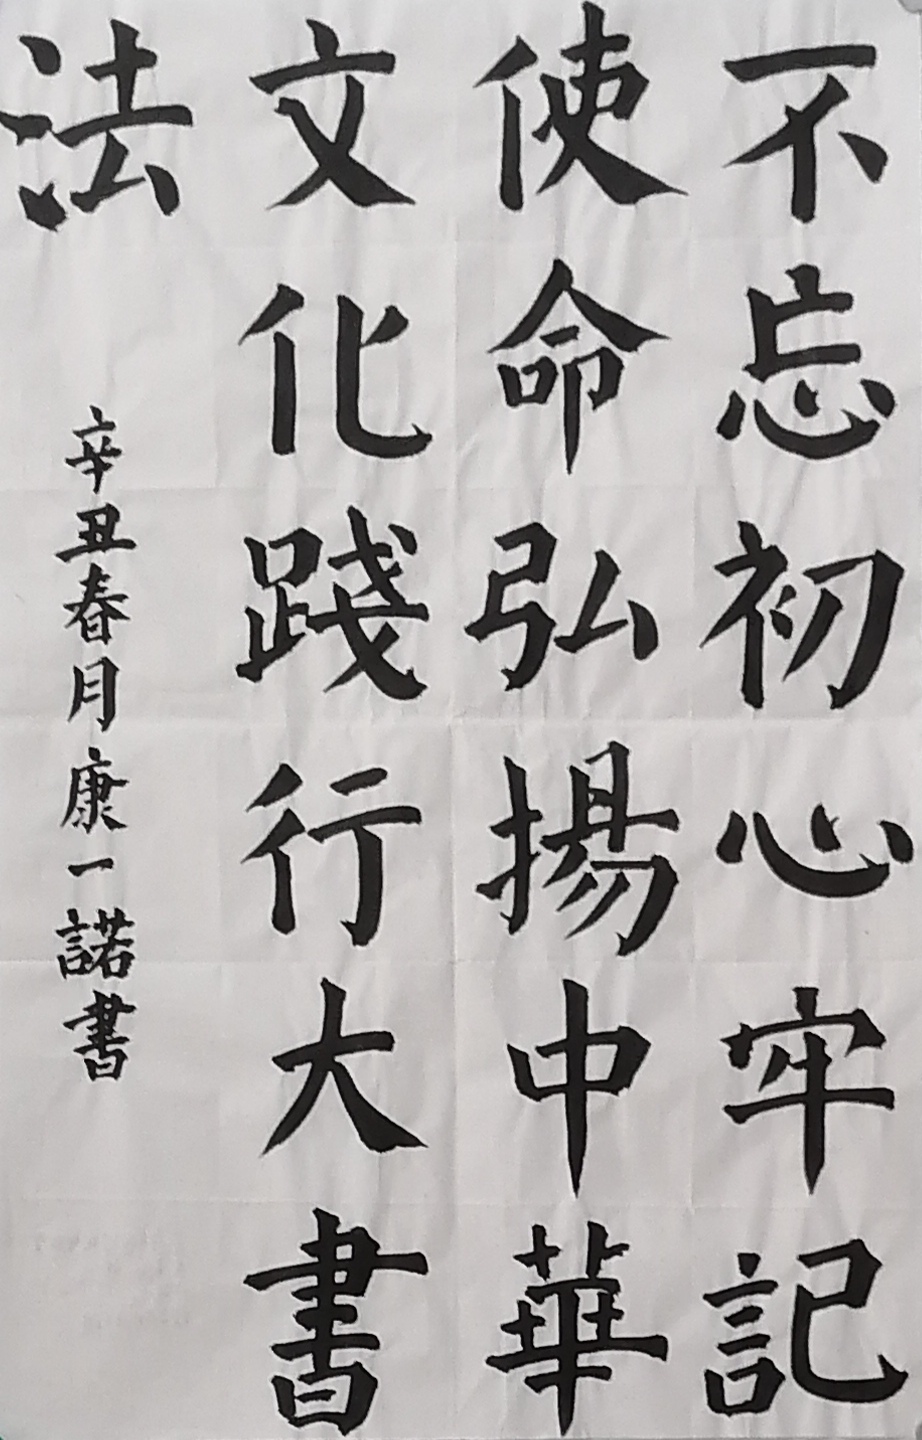 不忘初心牢記
使命弘揚中華
文化踐行大書
法
辛丑春月康一諾書